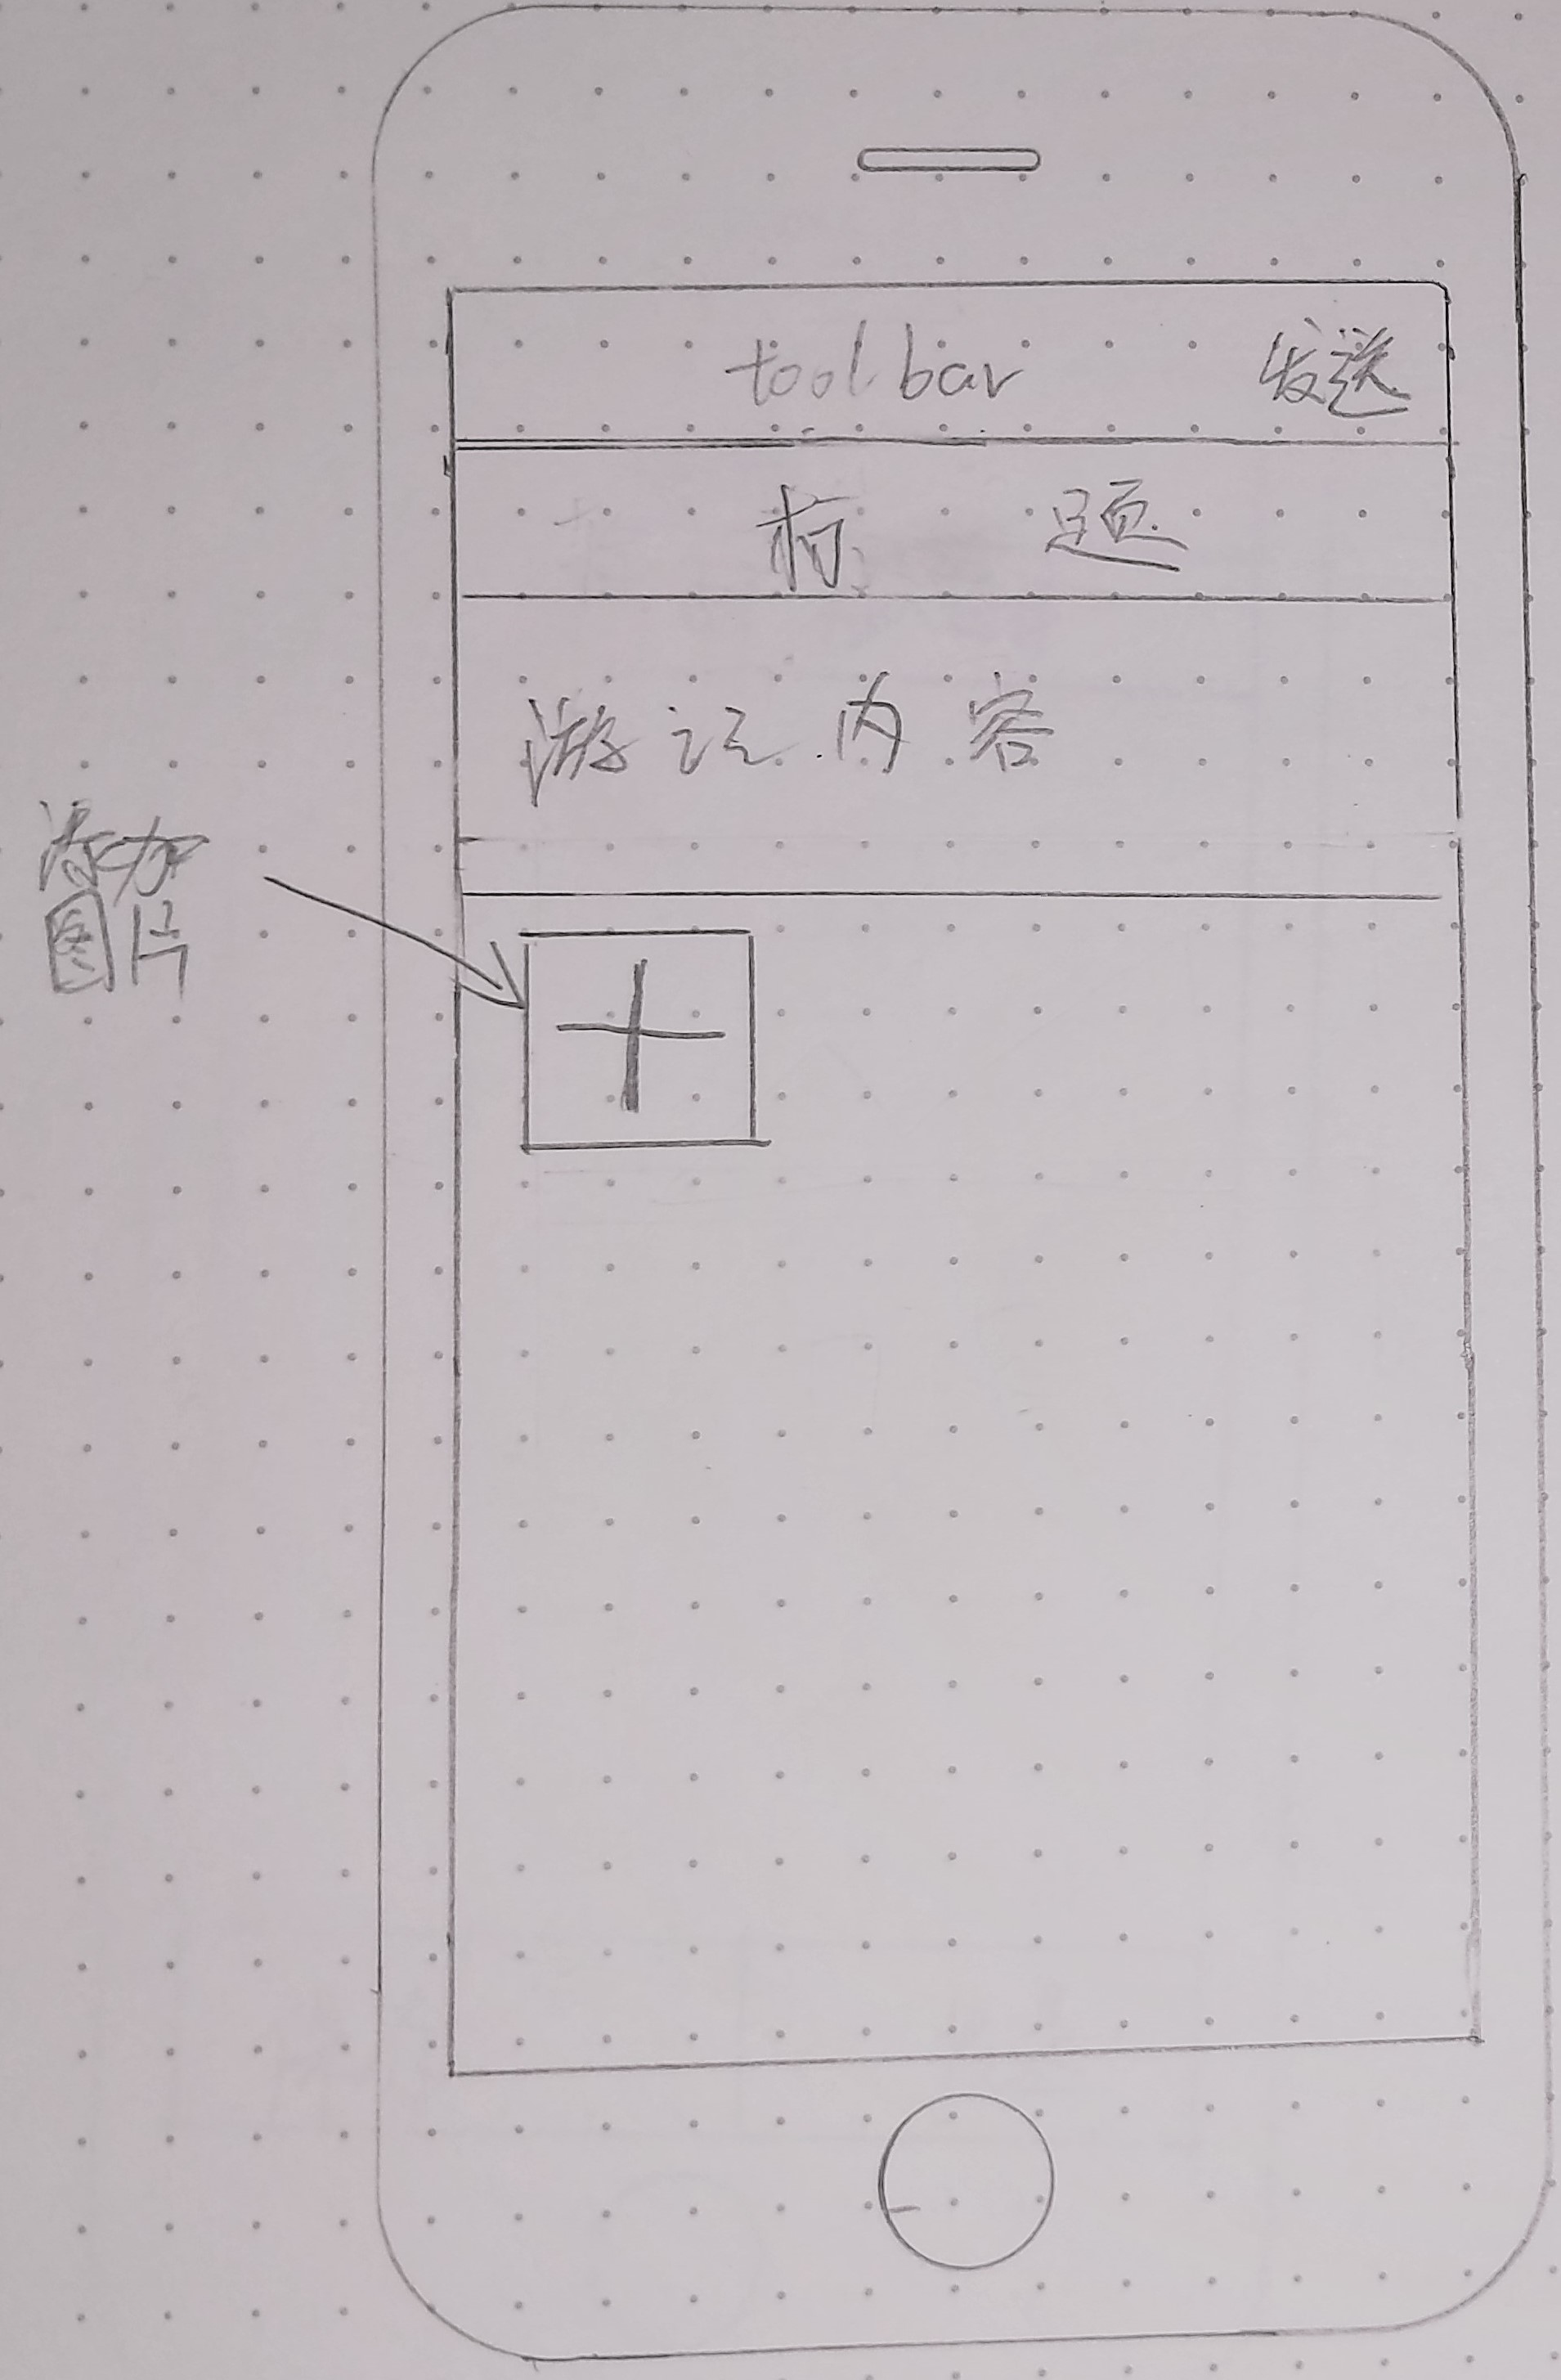 toolbar 发送
标 题
游记内容
添加
图片